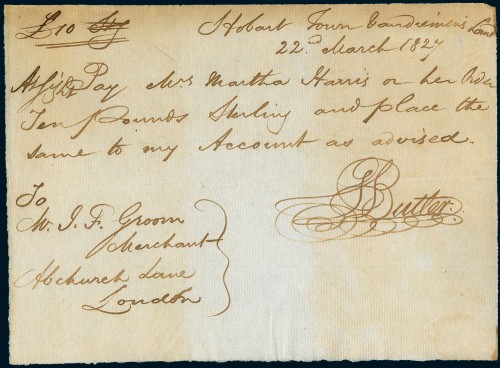 £10 Stg Hobart Town Vandiemen's Land
22nd March 1827
At Sight Pay Mrs Martha Harris or her Order
Ten Pounds Sterling and place the
same to my Account as advised.
To
Mr. J. F. Groom
Merchant
Abchurch Lane
London
Butler.